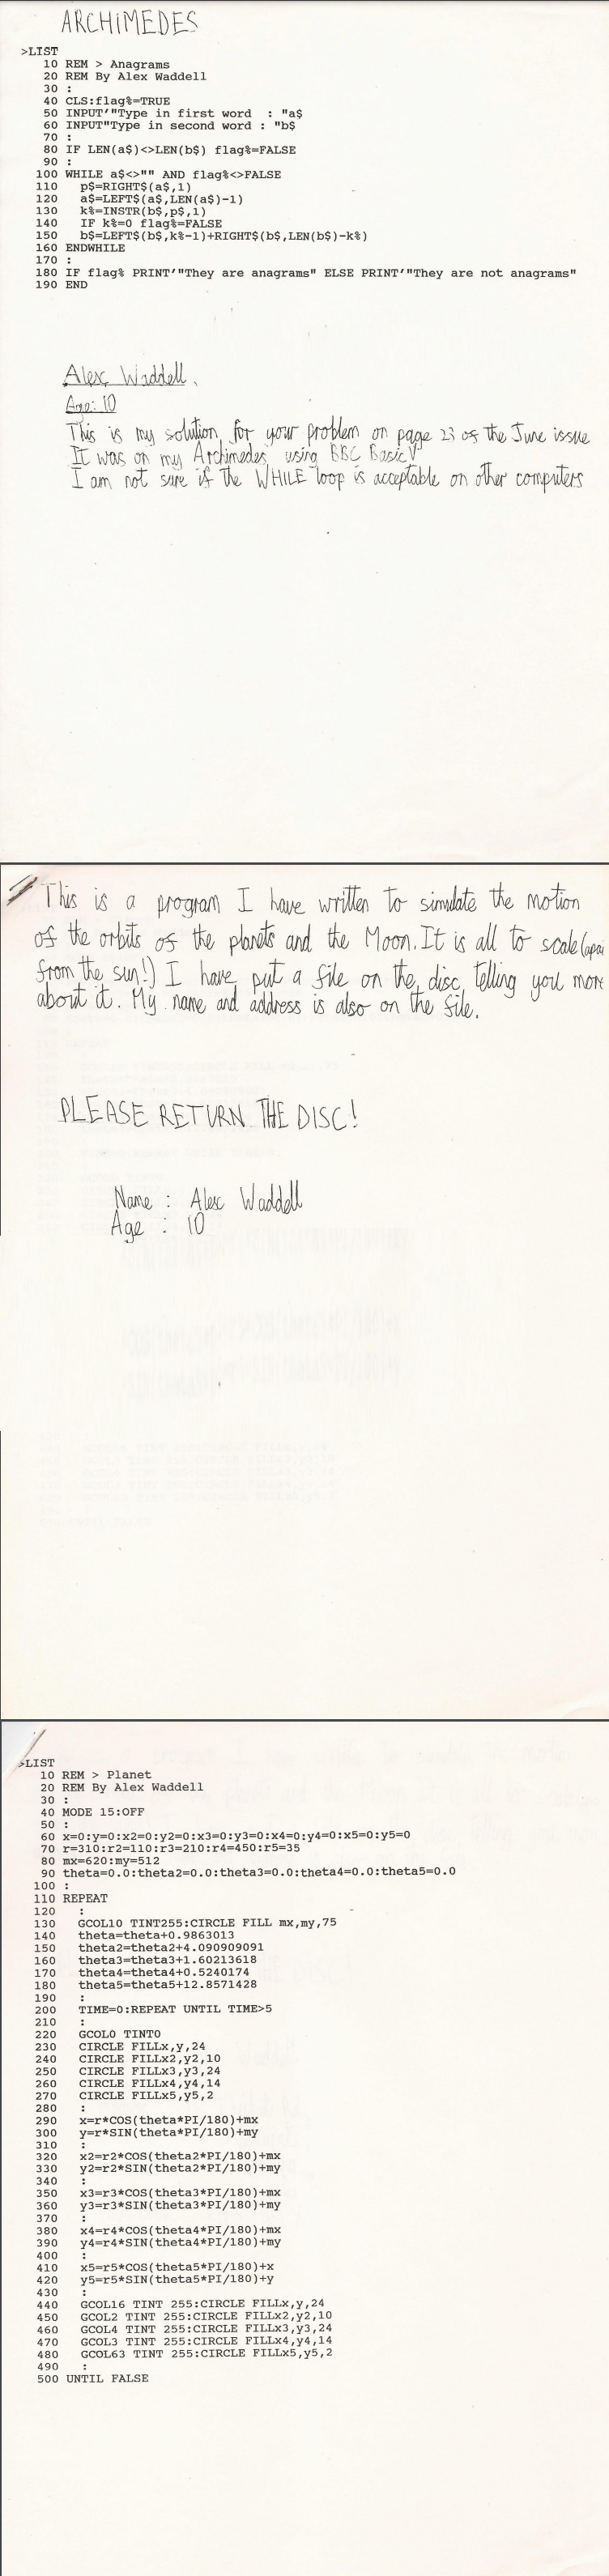 ARCHiMEDES
>LIST
10 REM > Anagrams
20 REM By Alex Waddell
30 :
40 CLS:flag%=TRUE
50 INPUT'"Type in first word  : "a$
60 INPUT"Type in second word : "b$
70 :
80 IF LEN(a$)<>LEN(b$) flag%=FALSE
90 :
100 WHILE a$<>"" AND flag%<>FALSE
110   p$=RIGHT$(a$,1)
120   a$=LEFT$(a$,LEN(a$)-1)
130   k%=INSTR(b$,p$,1)
140   IF k%=0 flag%=FALSE
150   b$=LEFT$(b$,k%-1)+RIGHT$(b$,LEN(b$)-k%)
160 ENDWHILE
170 :
180 IF flag% PRINT'"They are anagrams" ELSE PRINT'"They are not anagrams"
190 END
Alex Waddell.
Age: 10
This is my solution for your problem on page 23 of the June issue
It was on my Archimedes using BBC Basic V
I am not sure if the WHILE loop is acceptable on other computers
This is a program I have written to simulate the motion
of the orbits of the planets and the Moon. It is all to scale (apa
from the sun!) I have put a file on the disc telling you more
about it. My name and address is also on the file.
PLEASE RETURN THE DISC!
Name : Alex Waddell
Age : 10
>LIST
10 REM > Planet
20 REM By Alex Waddell
30 :
40 MODE 15:OFF
50 :
60 x=0:y=0:x2=0:y2=0:x3=0:y3=0:x4=0:y4=0:x5=0:y5=0
70 r=310:r2=110:r3=210:r4=450:r5=35
80 mx=620:my=512
90 theta=0.0:theta2=0.0:theta3=0.0:theta4=0.0:theta5=0.0
100 :
110 REPEAT
120   :
130   GCOL10 TINT255:CIRCLE FILL mx,my,75
140   theta=theta+0.9863013
150   theta2=theta2+4.090909091
160   theta3=theta3+1.60213618
170   theta4=theta4+0.5240174
180   theta5=theta5+12.8571428
190   :
200   TIME=0:REPEAT UNTIL TIME>5
210   :
220   GCOL0 TINT0
230   CIRCLE FILLx,y,24
240   CIRCLE FILLx2,y2,10
250   CIRCLE FILLx3,y3,24
260   CIRCLE FILLx4,y4,14
270   CIRCLE FILLx5,y5,2
280   :
290   x=r*COS(theta*PI/180)+mx
300   y=r*SIN(theta*PI/180)+my
310   :
320   x2=r2*COS(theta2*PI/180)+mx
330   y2=r2*SIN(theta2*PI/180)+my
340   :
350   x3=r3*COS(theta3*PI/180)+mx
360   y3=r3*SIN(theta3*PI/180)+my
370   :
380   x4=r4*COS(theta4*PI/180)+mx
390   y4=r4*SIN(theta4*PI/180)+my
400   :
410   x5=r5*COS(theta5*PI/180)+x
420   y5=r5*SIN(theta5*PI/180)+y
430   :
440   GCOL16 TINT 255:CIRCLE FILLx,y,24
450   GCOL2 TINT 255:CIRCLE FILLx2,y2,10
460   GCOL4 TINT 255:CIRCLE FILLx3,y3,24
470   GCOL3 TINT 255:CIRCLE FILLx4,y4,14
480   GCOL63 TINT 255:CIRCLE FILLx5,y5,2
490   :
500 UNTIL FALSE